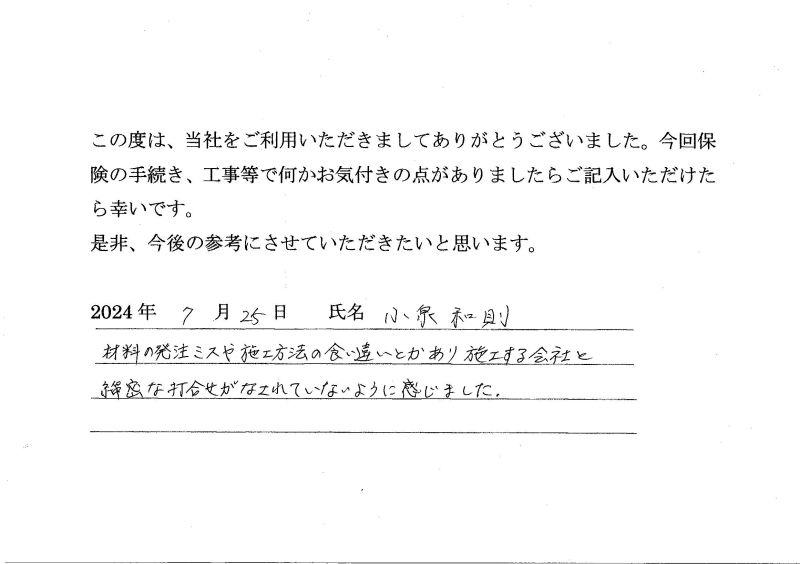 この度は、当社をご利用いただきましてありがとうございました。今回保
険の手続き、工事等で何かお気付きの点がありましたらご記入いただけた
ら幸いです。
是非、今後の参考にさせていただきたいと思います。
2024年 7月25日 氏名 小泉和則
材料の発注ミスや施工方法の食い違いとかあり施工する会社と
綿密な打合せがなされていないように感じました。